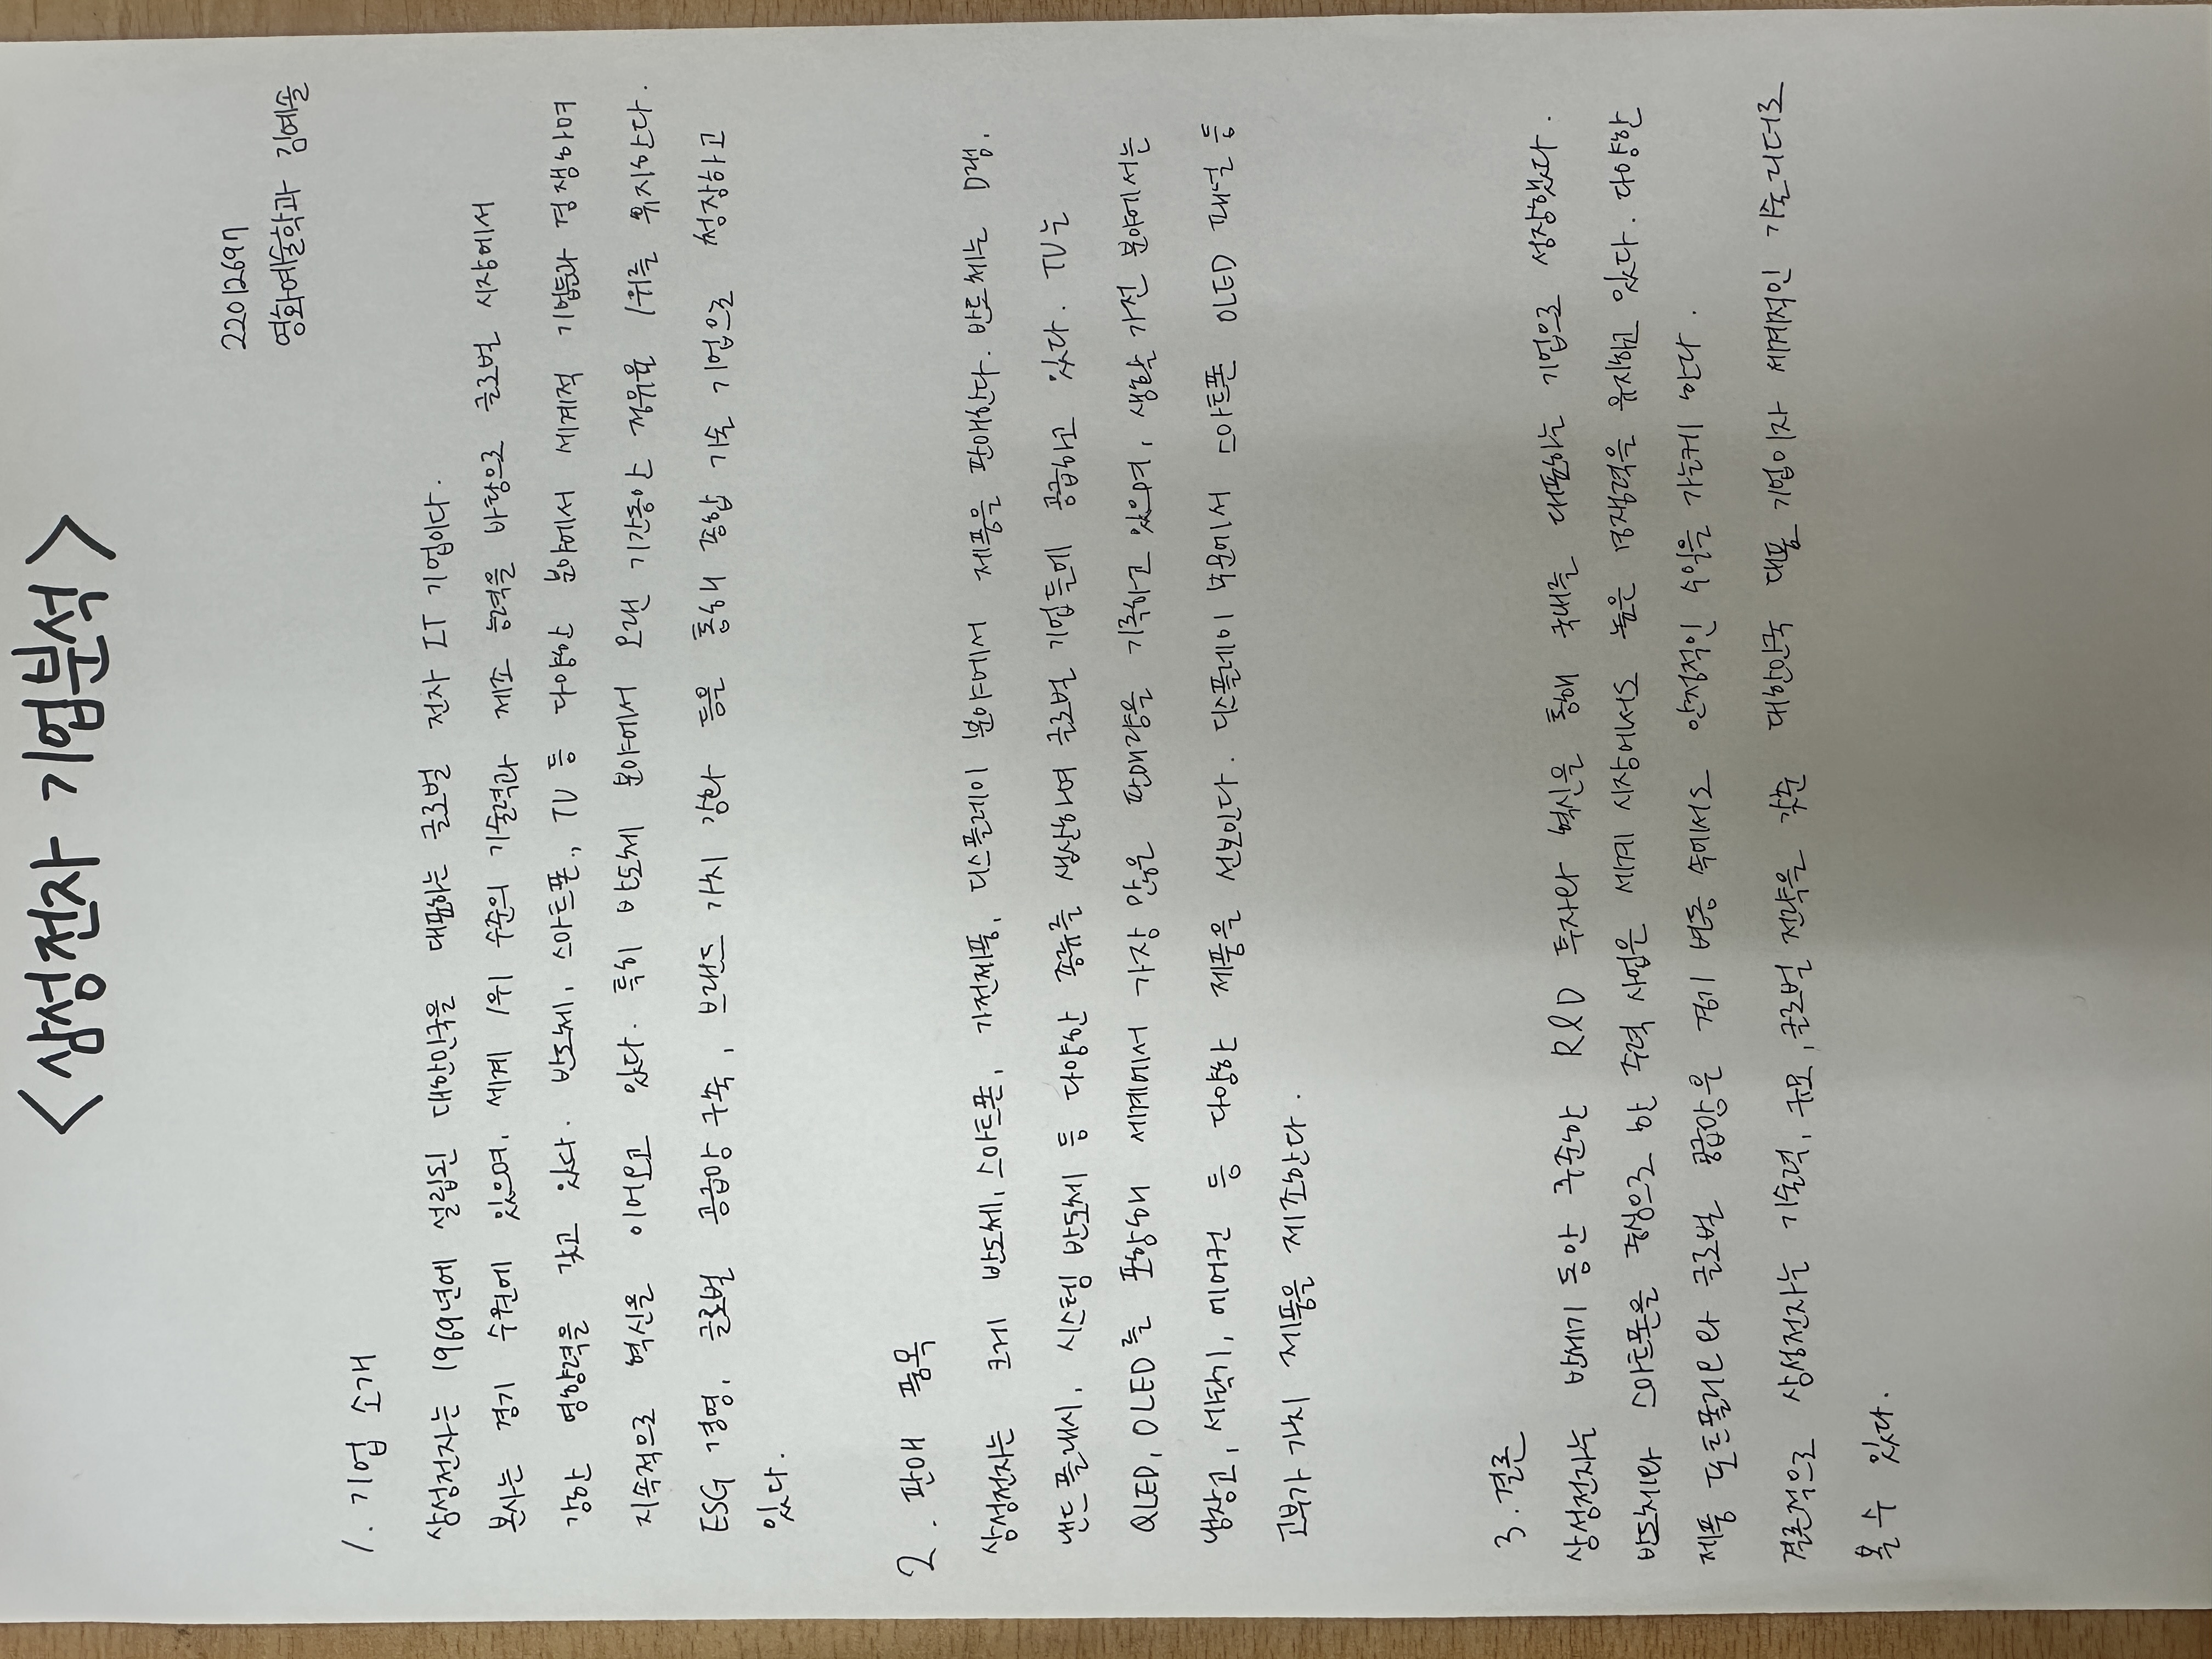 <삼성전자 기업분석>
22012697
영화예술학과 김예솔
1. 기업 소개
삼성전자는 1969년에 설립된 대한민국을 대표하는 글로벌 전자 IT 기업이다.
본사는 경기 수원에 있으며, 세계 1위 수준의 기술력과 제조 능력을 바탕으로 글로벌 시장에서
강한 영향력을 갖고 있다. 반도체, 스마트폰, TV 등 다양한 분야에서 세계적 기업들과 경쟁하며
지속적으로 혁신을 이어오고 있다. 특히 반도체 분야에서 오랜 기간동안 점유율 1위를 유지한다.
ESG 경영, 글로벌 공급망 구축, 브랜드 가치 강화 등을 통해 종합 기술 기업으로 성장하고
있다.
2. 판매 품목
삼성전자는 크게 반도체, 스마트폰, 가전제품, 디스플레이 분야에서 제품을 판매한다. 반도체는 D램,
낸드플래시, 시스템 반도체 등 다양한 종류를 생산하여 글로벌 기업들에게 공급하고 있다. TV는
QLED, OLED를 포함해 세계에서 가장 많은 판매량을 기록하고 있으며, 생활 가전 분야에서는
냉장고, 세탁기, 에어컨 등 다양한 제품을 선보인다. 디스플레이 부문에서 스마트폰 OLED 패널 등
고부가 가치 제품을 제조한다.
3. 결론
삼성전자는 반세기 동안 꾸준한 R&D 투자와 혁신을 통해 국내를 대표하는 기업으로 성장했다.
반도체와 스마트폰을 중심으로 한 주력 사업은 세계 시장에서도 높은 경쟁력을 유지하고 있다. 다양한
제품 포트폴리오와 글로벌 공급망은 경기 변동 속에서도 안정적인 수익을 가능케 한다.
결론적으로 삼성전자는 기술력, 규모, 글로벌 전략을 갖춘 대한민국 대표 기업이자 세계적인 기술리더로
볼 수 있다.